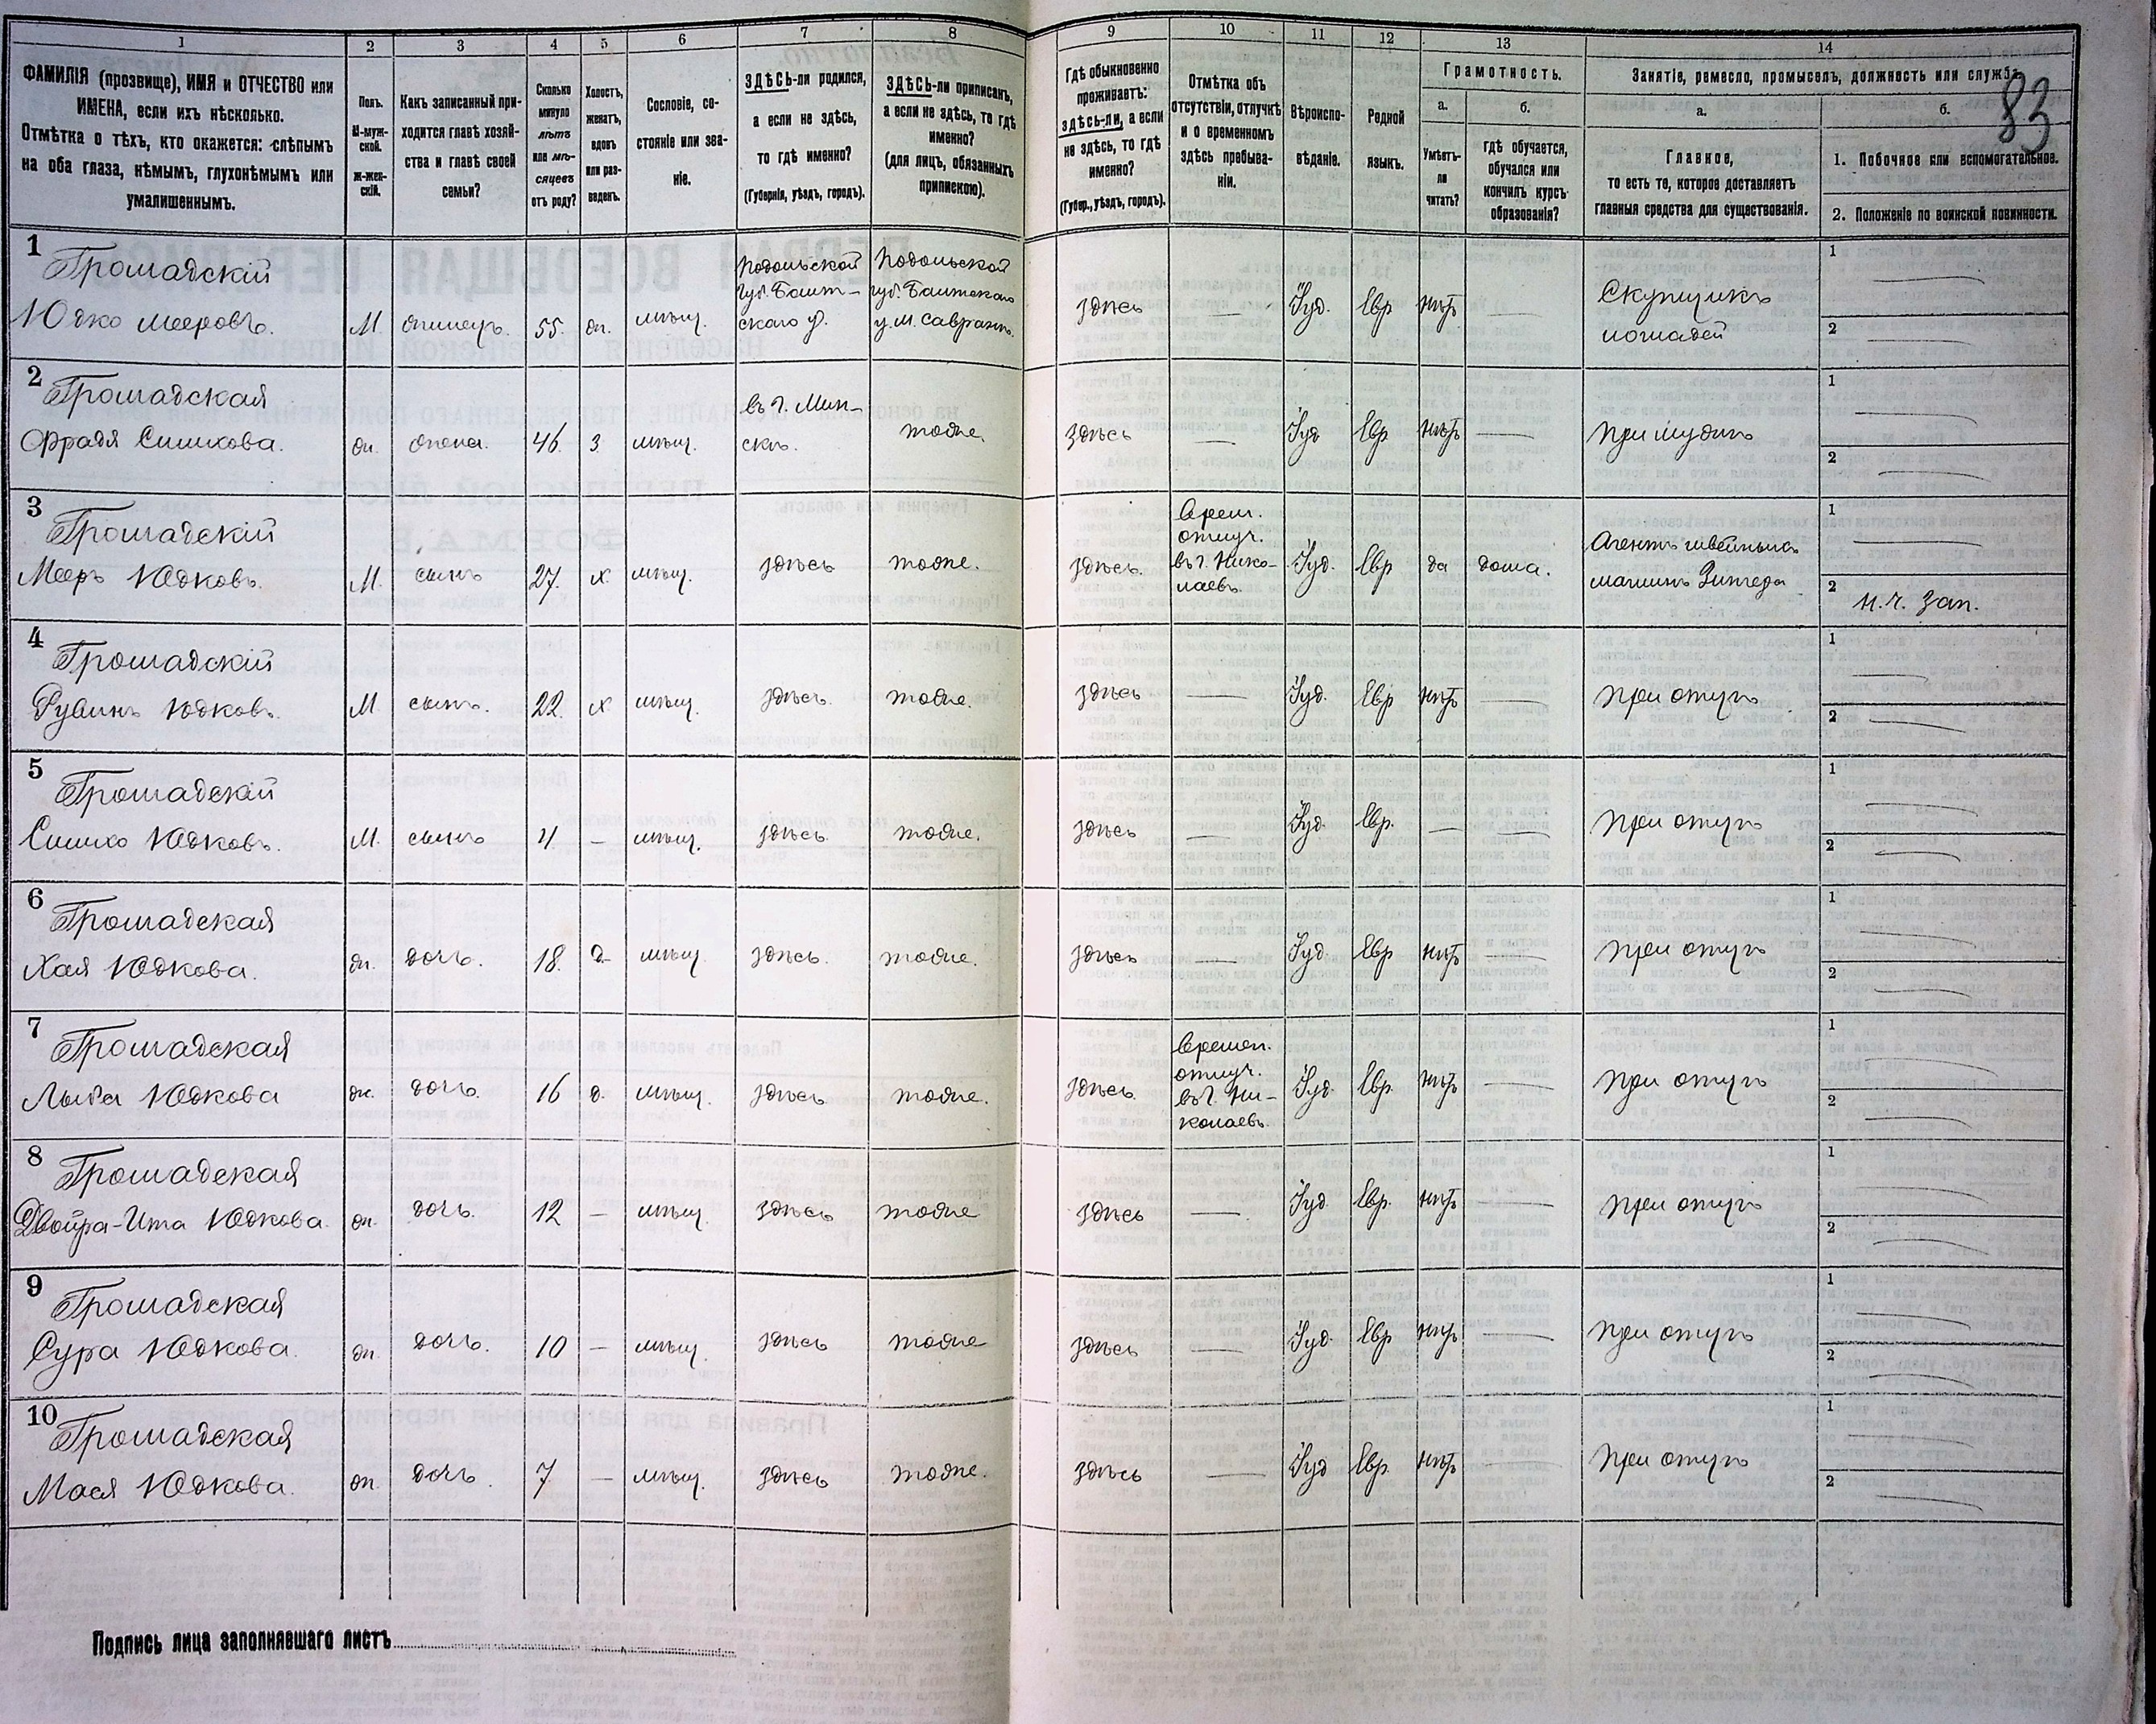 83
1 2 3 4 5 6 7 8 9 10 11 12 13 14
ФАМИЛІЯ (прозвище), ИМЯ и ОТЧЕСТВО или
ИМЕНА, если ихъ нѣсколько.
Отмѣтка о тѣхъ, кто окажется: слѣпымъ
на оба глаза, нѣмымъ, глухонѣмымъ или
умалишеннымъ.
Полъ.
М-муж-
ской.
Ж-жен-
скій.
Какъ записанный при-
ходится главѣ хозяй-
ства и главѣ своей
семьи?
Сколько
минуло
лѣтъ
или мѣ-
сяцевъ
отъ роду?
Холостъ,
женатъ,
вдовъ
или раз-
веденъ.
Сословіе, со-
стояніе или зва-
ніе.
ЗДѢСЬ-ли родился,
а если не здѣсь,
то гдѣ именно?
(Губернія, уѣздъ, городъ).
ЗДѢСЬ-ли приписанъ,
а если не здѣсь, то гдѣ
именно?
(для лицъ, обязанныхъ
припискою).
Гдѣ обыкновенно
проживаетъ:
здѣсь-ли, а если
не здѣсь, то гдѣ
именно?
(Губер., уѣздъ, городъ).
Отмѣтка объ
отсутствіи, отлучкѣ
и о временномъ
здѣсь пребыва-
ніи.
Вѣроиспо-
вѣданіе.
Родной
языкъ.
Грамотность.
а.
Умѣетъ-
ли
читать?
б.
гдѣ обучается,
обучался или
кончилъ курсъ
образованія?
Занятіе, ремесло, промыселъ, должность или служба.
а.
Главное,
то есть то, которое доставляетъ
главныя средства для существованія.
б.
1. Побочное или вспомогательное.
2. Положеніе по воинской повинности.
1
Громадскій
Юдко Мееровъ. М. 55. мѣщ.
Подольской
губ. Балт-
скаго у.
Подольской
губ. Балтскаго
у. м. Саврань.
здѣсь — Іуд. Евр нѣтъ —
Скупщикъ
лошадей
1 —
2 —
2
Громадская
Фрадя Сишкова. жн. жена. 46. З. мѣщ.
въ г. Мин-
скѣ.
тоже.
здѣсь — Іуд Евр нѣтъ — при мужѣ
1 —
2 —
3
Громадскій
Мееръ Юдковъ. М. сынъ 27. х. мѣщ. здѣсь тоже. здѣсь.
Врем.
отлуч.
въ г. Нико-
лаевъ.
Іуд. Евр да дома.
Агентъ швейныхъ
машинъ Зингера
1 —
2 н. ч. зап.
4
Громадскій
Рувинъ Юдковъ. М. сынъ. 22. х. мѣщ. здѣсь. тоже. здѣсь — Іуд. Евр нѣтъ — при отцѣ
1 —
2 —
5
Громадскій
Сишко Юдковъ. М. сынъ 4 — мѣщ. здѣсь. тоже. здѣсь — Іуд. Евр. — — при отцѣ
1 —
2 —
6
Громадская
Хая Юдкова. жн. дочь. 18. д. мѣщ. здѣсь. тоже. здѣсь — Іуд. Евр нѣтъ — при отцѣ
1 —
2 —
7
Громадская
Юдкова жн. дочь. 16 д. мѣщ. здѣсь тоже. здѣсь.
Времен.
отлуч.
въ г. Ни-
колаевъ.
Іуд. Евр. нѣтъ — при отцѣ
1 —
2 —
8
Громадская
Двойра-Ита Юдкова. жн. дочь. 12 — мѣщ. здѣсь тоже здѣсь — Іуд. Евр. нѣтъ — при отцѣ
1 —
2 —
9
Громадская
Сура Юдкова. жн. дочь. 10 — мѣщ. здѣсь тоже здѣсь — Іуд. Евр нѣтъ — при отцѣ
1 —
2 —
10
Громадская
Мася Юдкова. жн. дочь. 7 — мѣщ. здѣсь тоже. здѣсь — Іуд Евр. нѣтъ — при отцѣ
1 —
2 —
Подпись лица заполнявшаго листъ